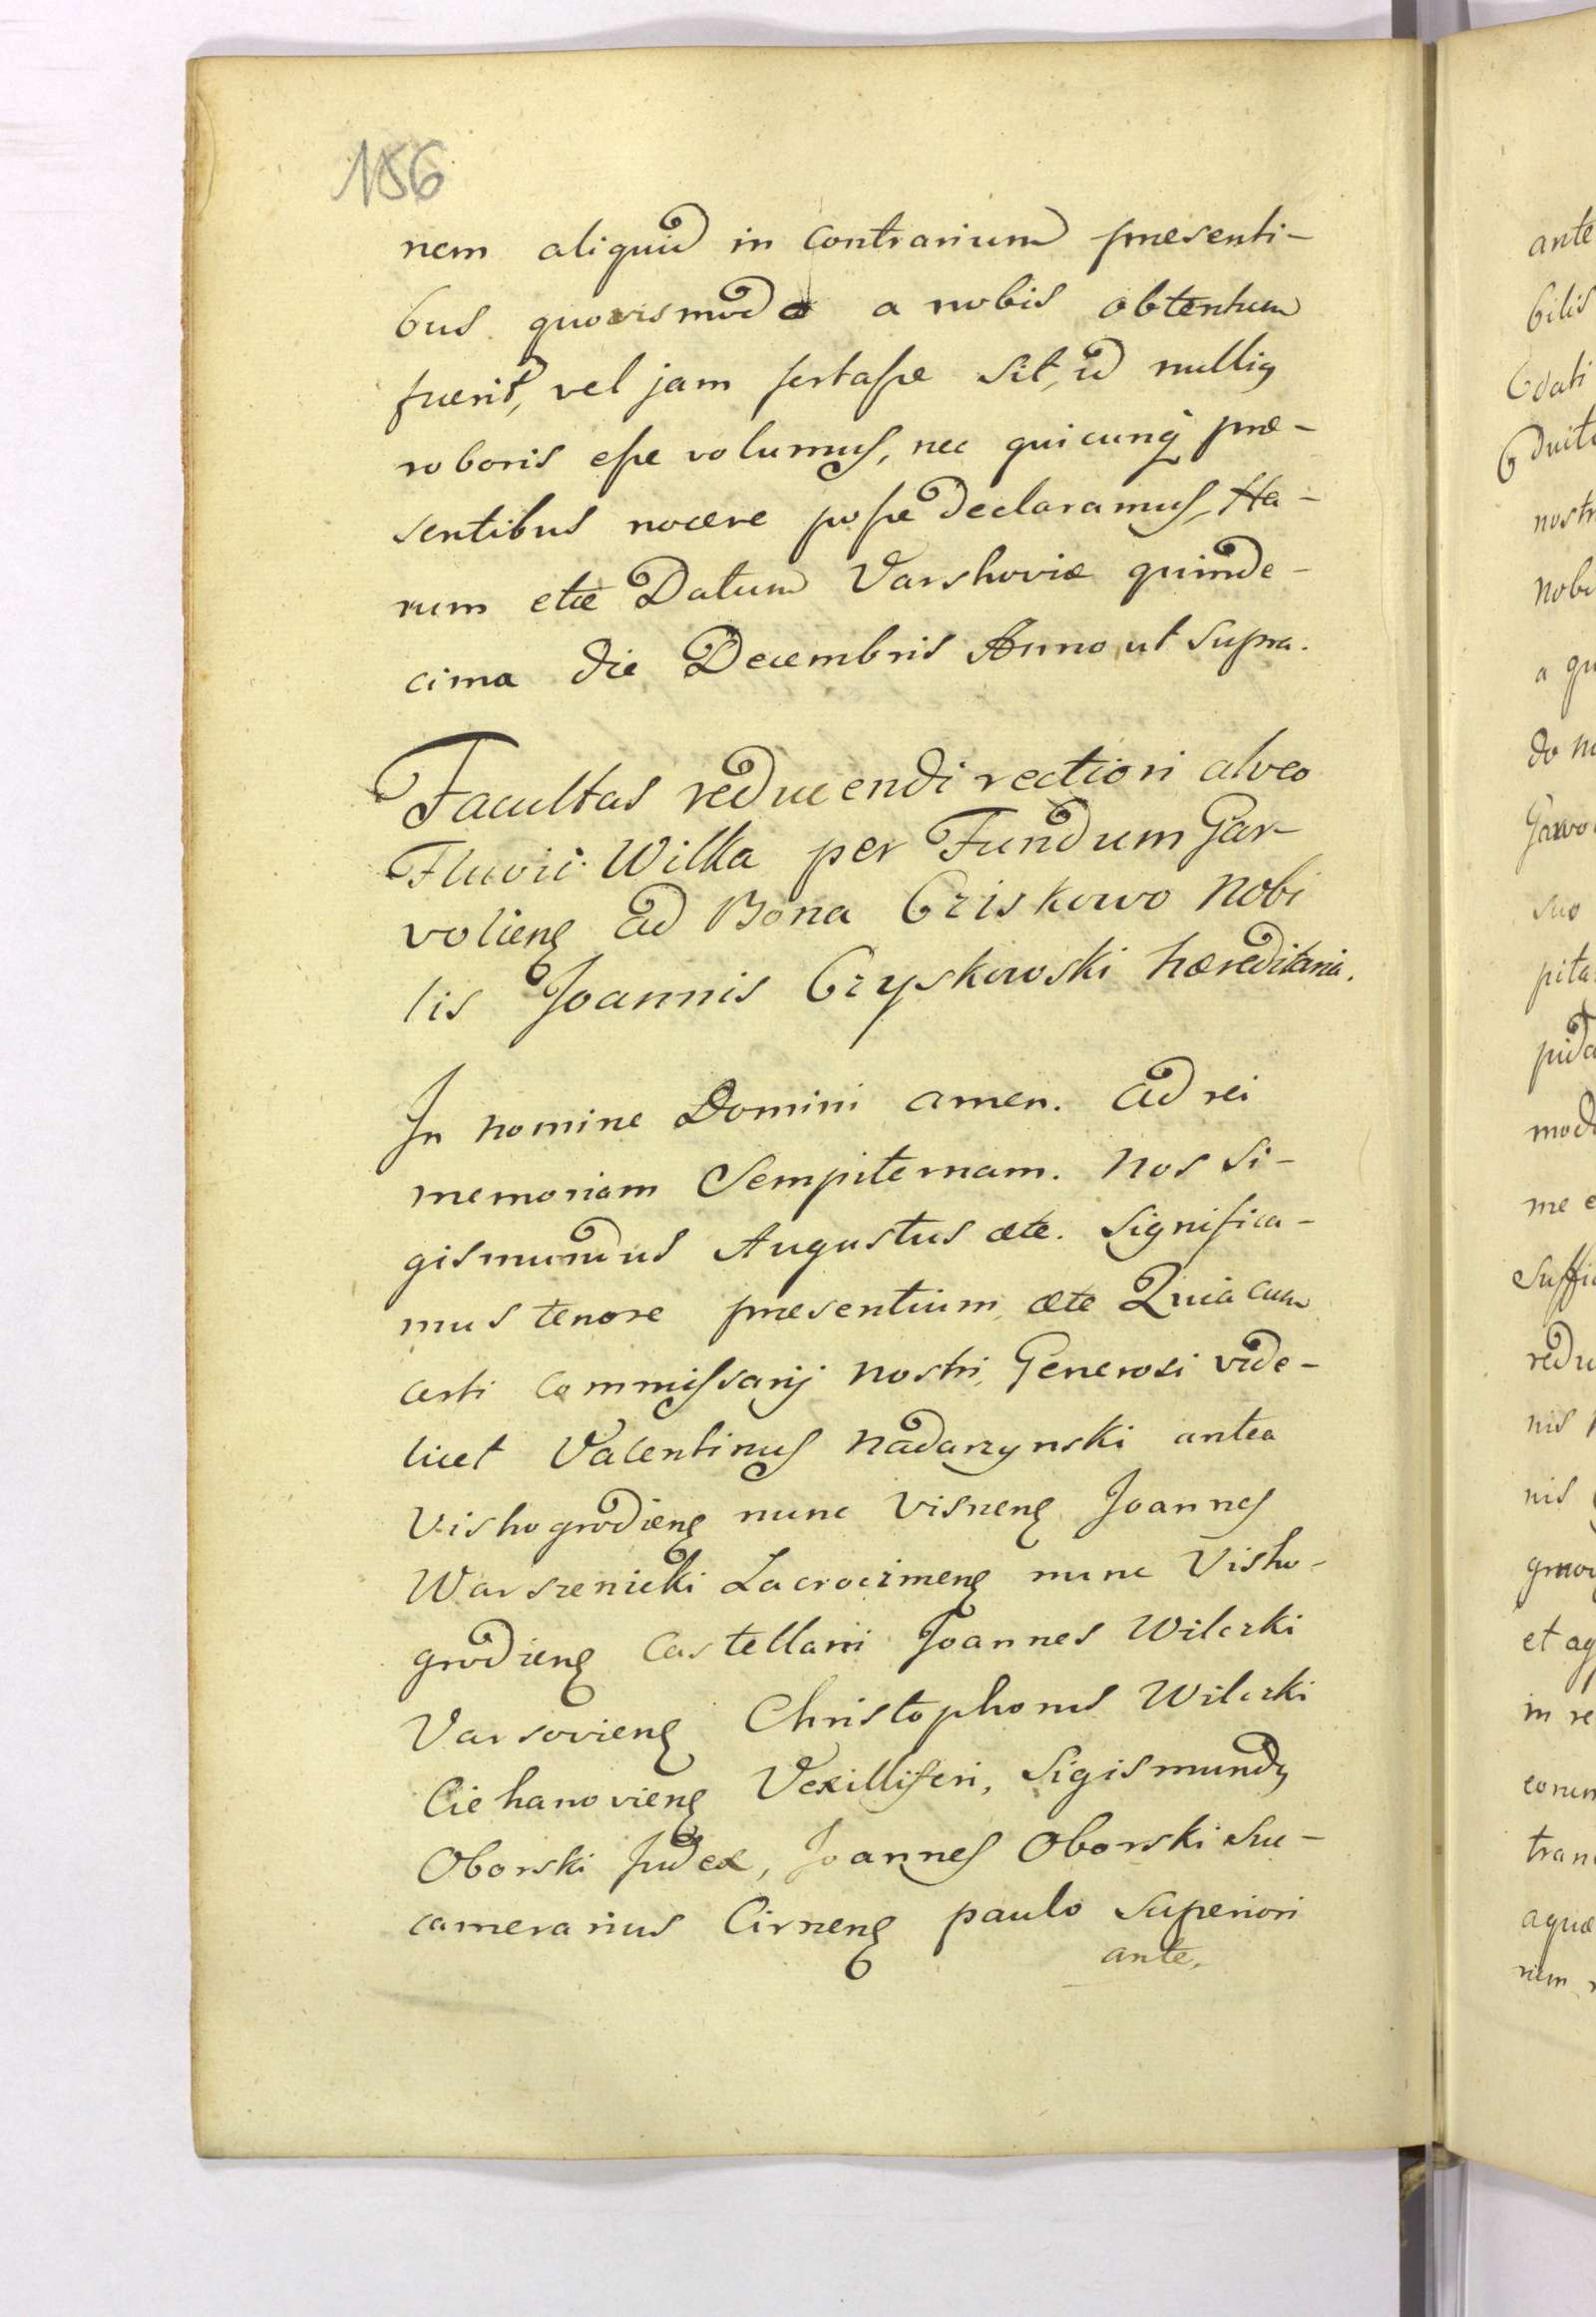 186
nem aliquid in contrarium præsenti-
bus quovismodo a nobis obtentum
fuerit, vel jam fortasse sit, id nullius
roboris esse volumus, nec quicunq præ-
sentibus nocere posse declaramus, Ha-
rum etæ Datum Varshoviæ quinde-
cima die Decembris Anno ut supra.
Facultas reducendi rectiori alveo
Fluvii Wilka per Fundum Gar-
volieng ad Bona Criskowo Nobi
lis Joannis Cryskowski hæreditaria.
In nomine Domini amen. Ad rei
memoriam Sempiternam. Nos Si-
gismundus Augustus æte. Significa-
mus tenore præsentium æte Quia cum
certi Commissarij nostri, Generosi vide-
licet Valentinus Nadarzynski antea
Vishogrodieng nunc Visneng Joannes
Warszenicki Zacrocimeng nunc Visho-
grodieng Castellani Joannes Wilczki
Varsovieng Christophorus Wilczki
Ciehanovieng Vexilliferi, Sigismundus
Oborski Judex, Joannes Oborski Suc-
camerarius Cirneng paulo superiori
ante.
ante
bilis
dati
nostr
nobi
a qu
do n
Garwo
suo
pita
mod
me e
suffi
redu
nis
nis
et ag
in re
eorum
tran
aquæ
nem